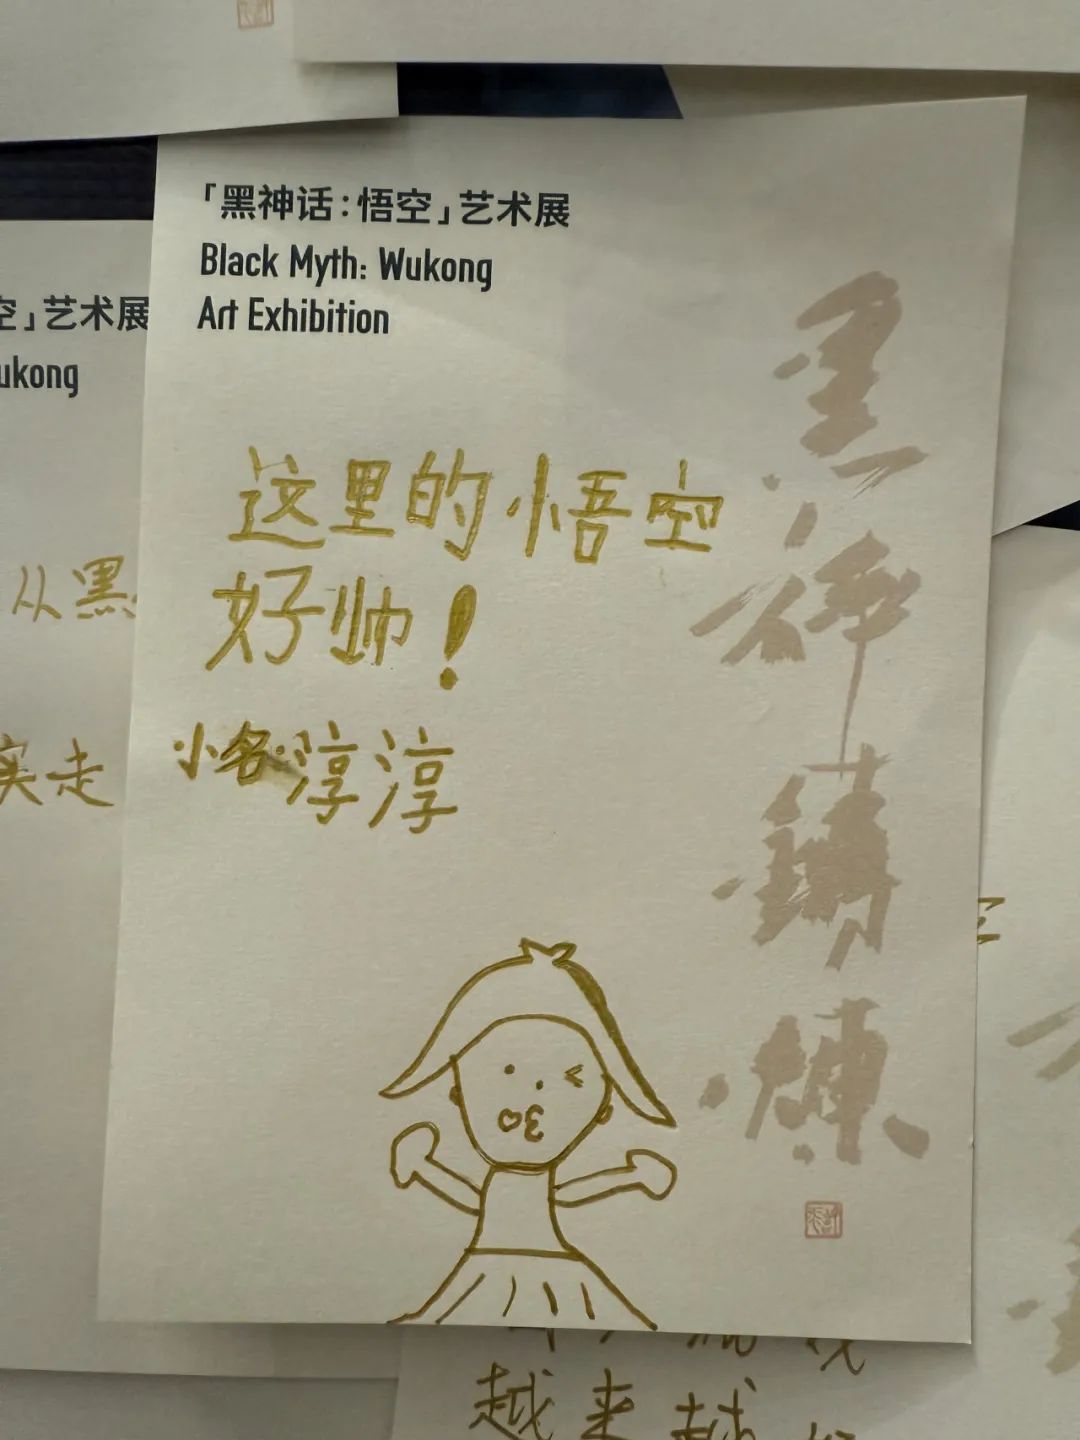 「黑神话:悟空」艺术展
Black Myth: Wukong
Art Exhibition
空」艺术展
ukong
这里的悟空
好帅!
小名:淳淳
从黑
实走
越来越